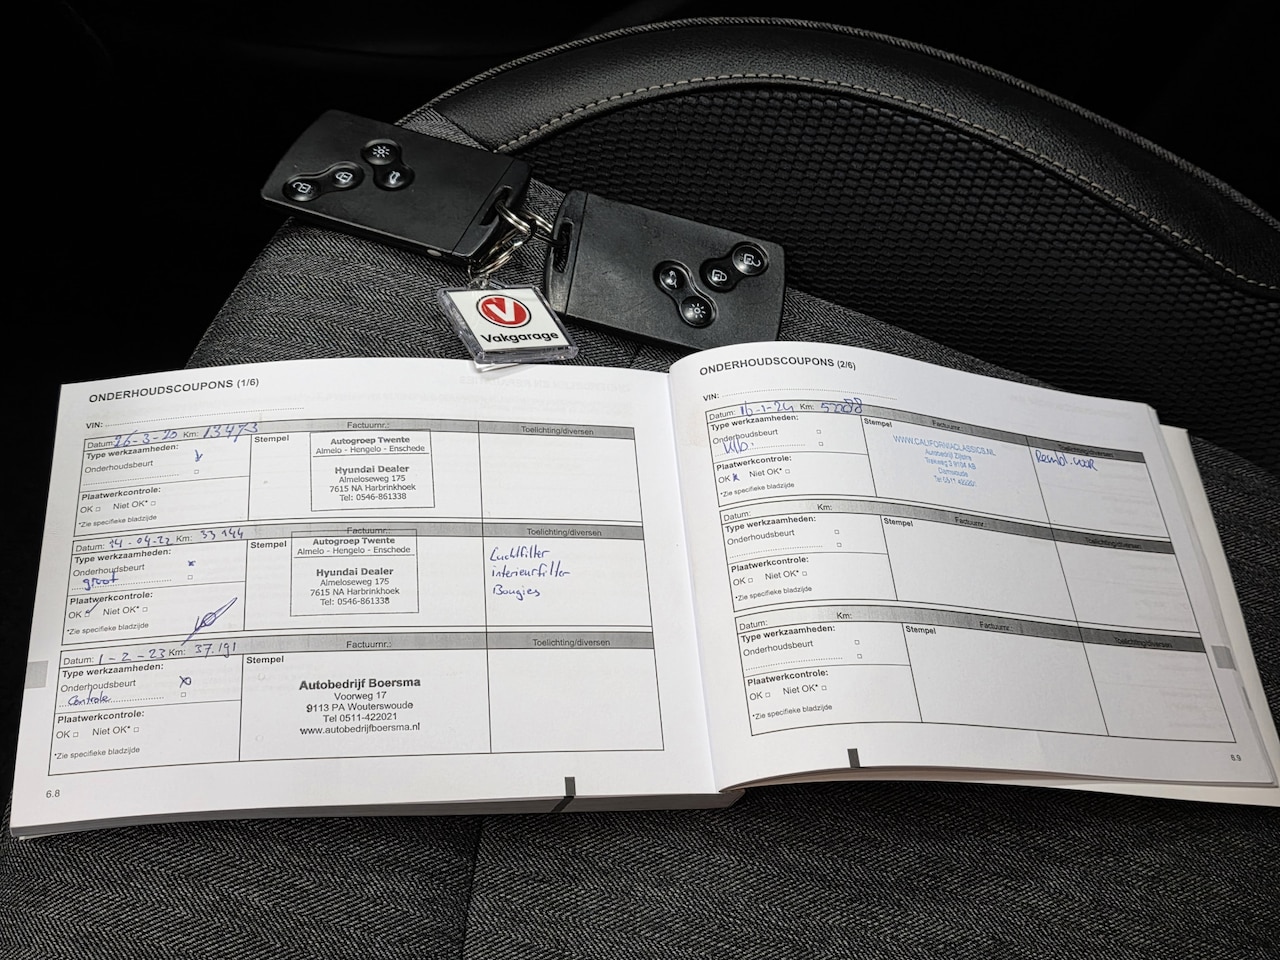 Vakgarage
ONDERHOUDSCOUPONS (1/6)
VIN:
Datum: 26-3-20 Km: 13473
Factuurnr.:
Toelichting/diversen
Type werkzaamheden:
Stempel
Onderhoudsbeurt
Plaatwerkcontrole:
OK Niet OK*
*Zie specifieke bladzijde
Autogroep Twente
Almelo - Hengelo - Enschede
Hyundai Dealer
Almeloseweg 175
7615 NA Harbrinkhoek
Tel: 0546-861338
Datum: 14-04-22 Km: 33144
Factuurnr.:
Toelichting/diversen
Type werkzaamheden:
Stempel
Onderhoudsbeurt
groot
Plaatwerkcontrole:
OK Niet OK*
*Zie specifieke bladzijde
Autogroep Twente
Almelo - Hengelo - Enschede
Hyundai Dealer
Almeloseweg 175
7615 NA Harbrinkhoek
Tel: 0546-861338
Luchtfilter
interieurfilter
Bougies
Datum: 1-2-23 Km: 37.191
Factuurnr.:
Toelichting/diversen
Type werkzaamheden:
Stempel
Onderhoudsbeurt
Controle
Plaatwerkcontrole:
OK Niet OK*
*Zie specifieke bladzijde
Autobedrijf Boersma
Voorweg 17
9113 PA Wouterswoude
Tel 0511-422021
www.autobedrijfboersma.nl
6.8
ONDERHOUDSCOUPONS (2/6)
VIN:
Datum: 16-1-24 Km:
Factuurnr.:
Toelichting/diversen
Type werkzaamheden:
Stempel
Onderhoudsbeurt
Plaatwerkcontrole:
OK Niet OK*
*Zie specifieke bladzijde
WWW.CALIFORNIACLASSICS.NL
Autobedrijf Zijlstra
9104 AB
Damwoude
Rembl. voor
Datum: Km:
Factuurnr.:
Toelichting/diversen
Type werkzaamheden:
Stempel
Onderhoudsbeurt
Plaatwerkcontrole:
OK Niet OK*
*Zie specifieke bladzijde
Datum: Km:
Factuurnr.:
Toelichting/diversen
Type werkzaamheden:
Stempel
Onderhoudsbeurt
Plaatwerkcontrole:
OK Niet OK*
*Zie specifieke bladzijde
6.9